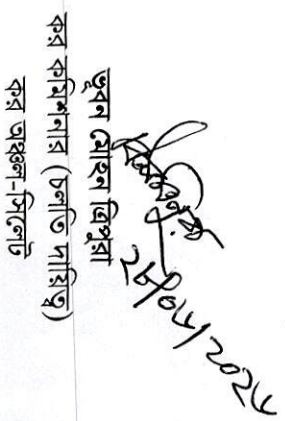 ২৮/০৮/২০২৪
ভুবন মোহন ত্রিপুরা
কর কমিশনার (চলতি দায়িত্ব)
কর অঞ্চল-সিলেট